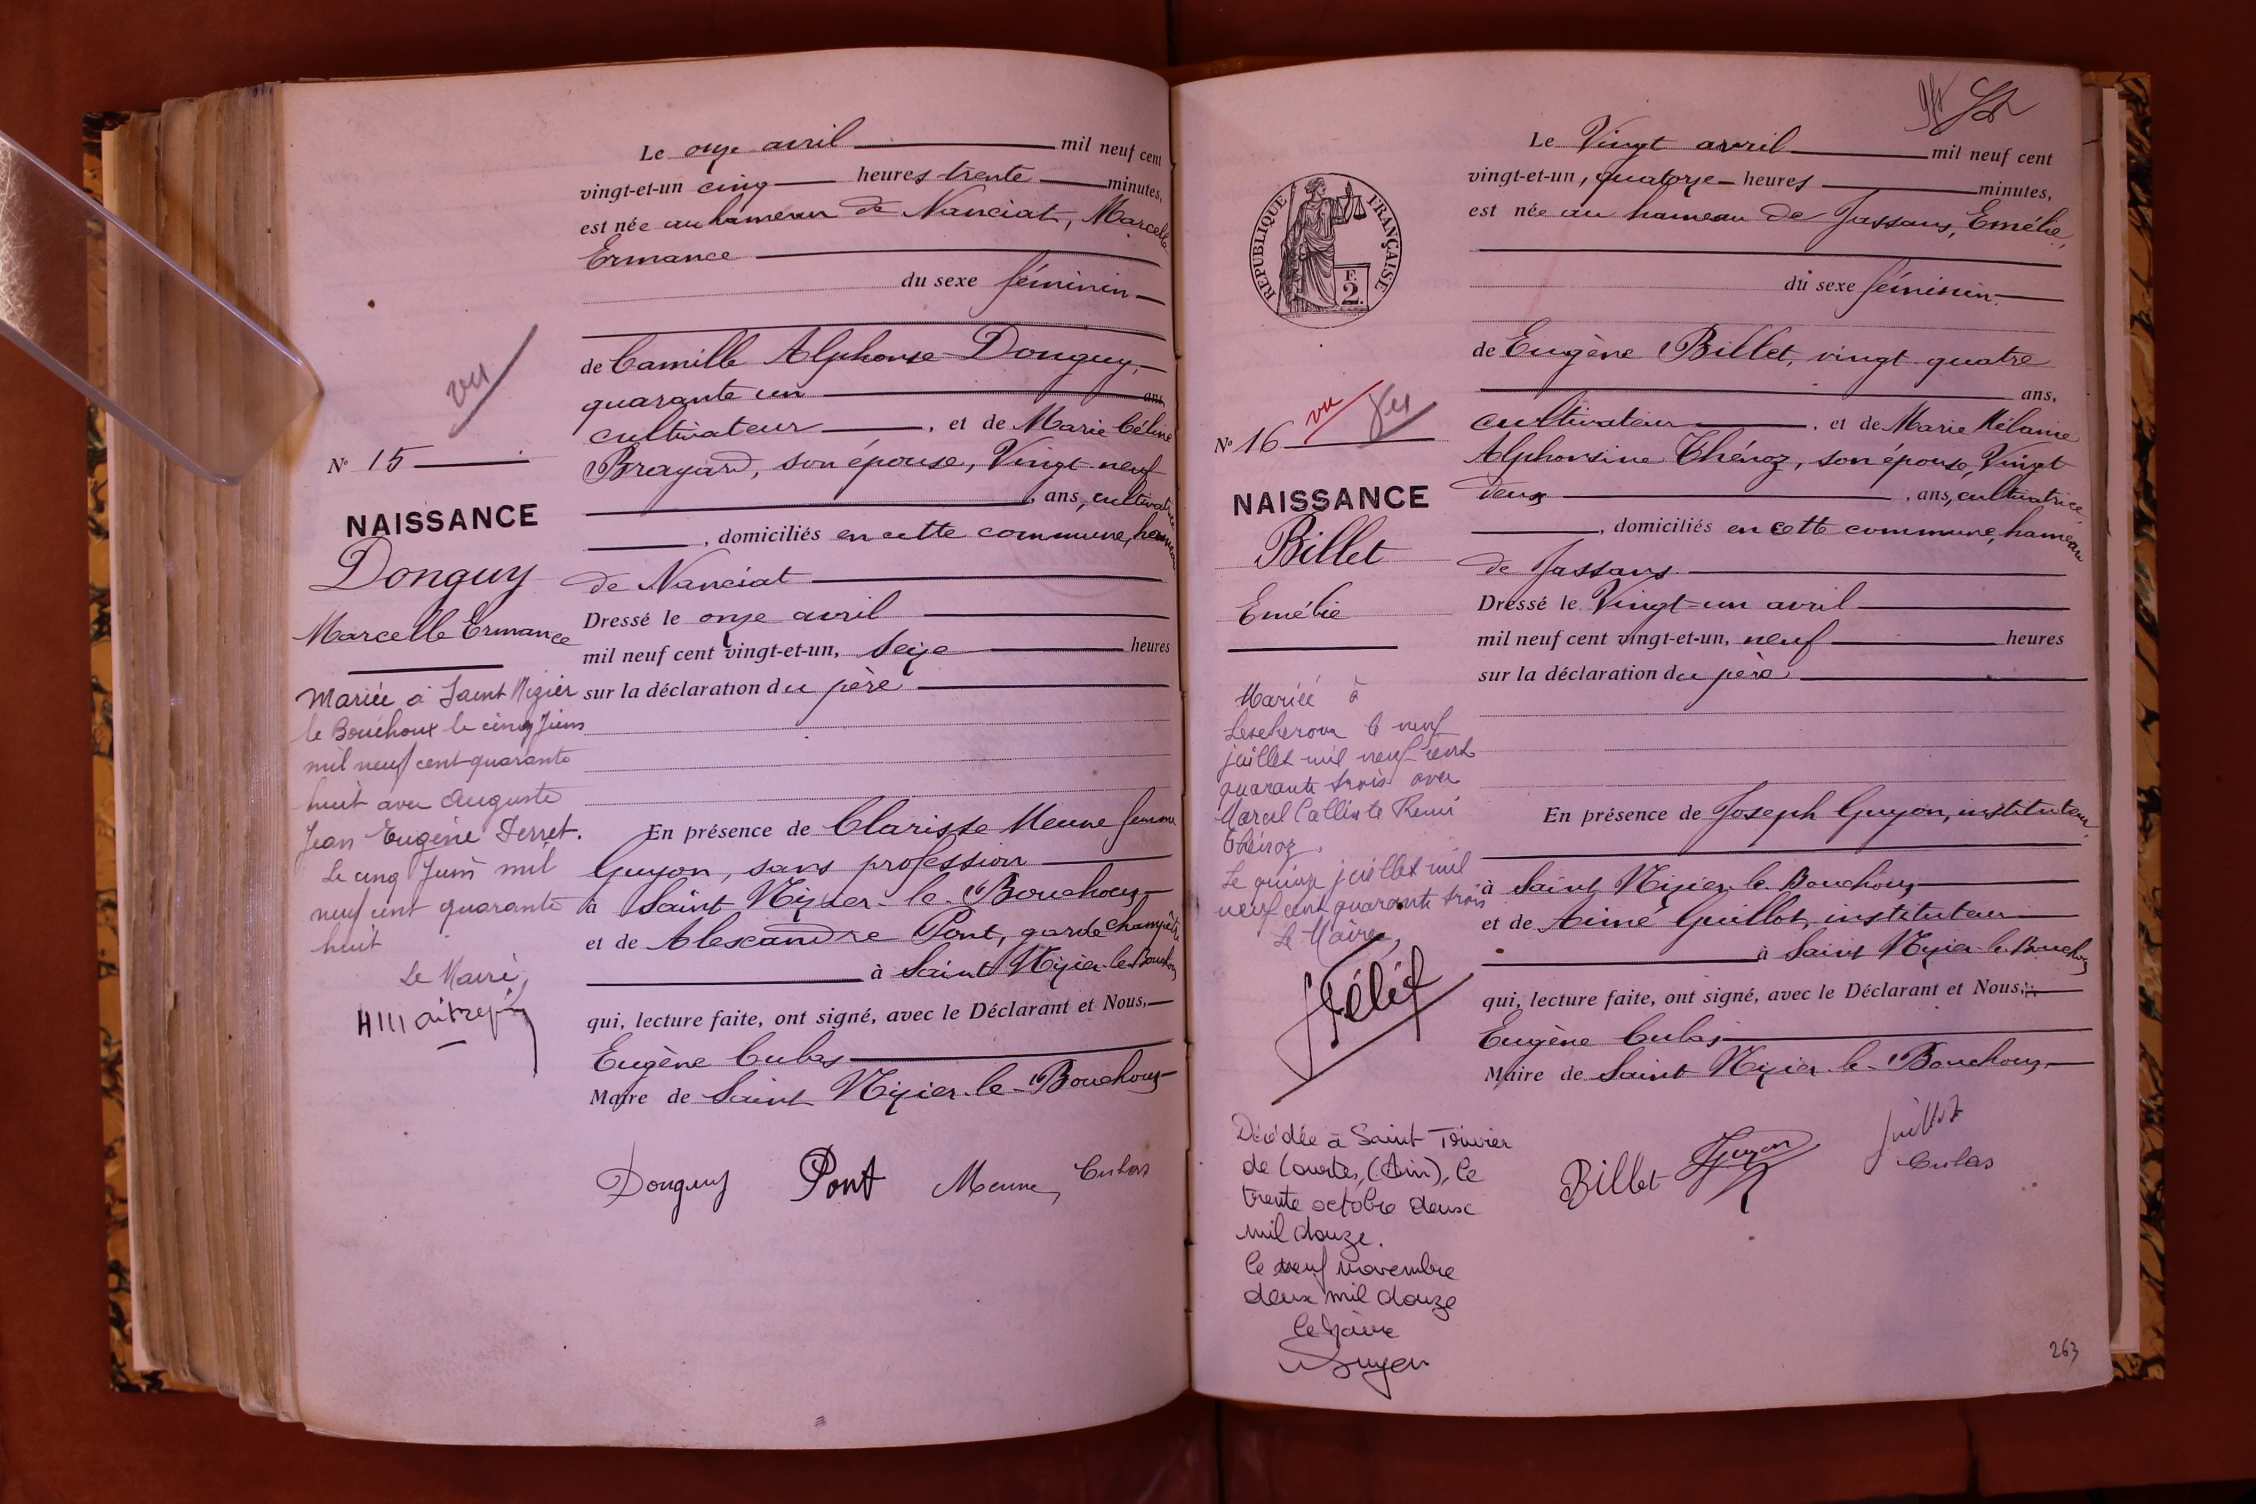 Le onze avril mil neuf cent
vingt-et-un cinq heures trente minutes,
est née au hameau de Nanciat, Marcelle
Ermance
du sexe féminin
de Camille Alphonse Donguy,
quarante un ans,
cultivateur, et de Marie Céline
Brayard, son épouse, Vingt neuf
, ans, cultivatrice
, domiciliés en cette commune, hameau
de Nanciat
Dressé le onze avril
mil neuf cent vingt-et-un, seize heures
sur la déclaration du père
En présence de Clarisse Meune femme
Guyon, sans profession
à Saint Nizier-le-Bouchoux
et de Alexandre Pont, garde champêtre
à Saint Nizier-le-Bouchoux
qui, lecture faite, ont signé, avec le Déclarant et Nous,
Eugène Cubas
Maire de Saint Nizier-le-Bouchoux
Donguy Pont Meune Cubas
vu
No 15
NAISSANCE
Donguy
Marcelle Ermance
Mariée à Saint Nizier
le Bouchoux le cinq Juin
mil neuf cent quarante
huit avec Auguste
Jean Eugène Perret.
Le cinq Juin mil
neuf cent quarante
huit
Le Maire
Le Vingt avril mil neuf cent
vingt-et-un, quatorze heures minutes,
est née au hameau de Jassans, Emélie,
du sexe féminin
de Eugène Billet, vingt quatre
ans,
cultivateur, et de Marie Mélanie
Alphonsine Thénoz, son épouse, Vingt
deux, ans, cultivatrice,
, domiciliés en cette commune, hameau
de Jassans
Dressé le Vingt-un avril
mil neuf cent vingt-et-un, neuf heures
sur la déclaration du père
En présence de Joseph Guyon, instituteur
à Saint Nizier-le-Bouchoux
et de Aimé Guillot, instituteur
à Saint Nizier-le-Bouchoux
qui, lecture faite, ont signé, avec le Déclarant et Nous,
Eugène Cubas
Maire de Saint Nizier-le-Bouchoux
Billet Guyon Guillot
Cubas
RÉPUBLIQUE FRANÇAISE
F.
2.
vu vu
No 16
NAISSANCE
Billet
Emélie
Mariée à
Lescheroux le neuf
juillet mil neuf cent
quarante trois avec
Marcel Calliste Remi
Thénoz.
Le quinze juillet mil
neuf cent quarante trois
Le Maire,
Décédée à Saint Trivier
de Courtes, (Ain), le
trente octobre deux
mil douze.
le neuf novembre
deux mil douze
le Maire
263